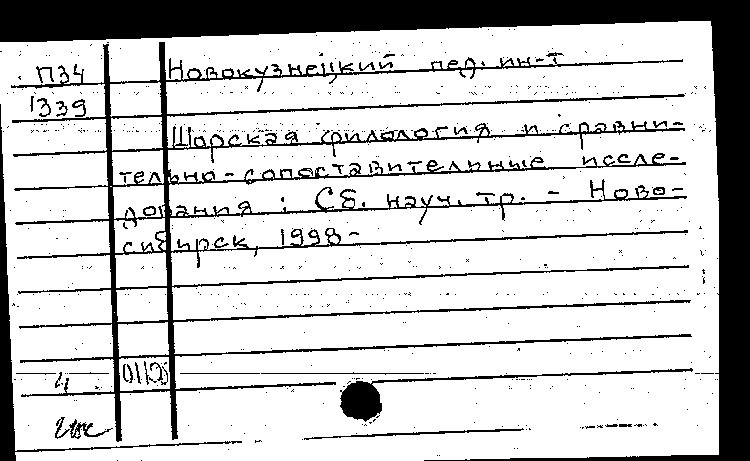 П34 Новокузнецкий пед. ин-т
1339
Шорская филология и сравни-
тельно-сопоставительные иссле-
дования : Сб. науч. тр. - Ново-
сибирск, 1998-
4